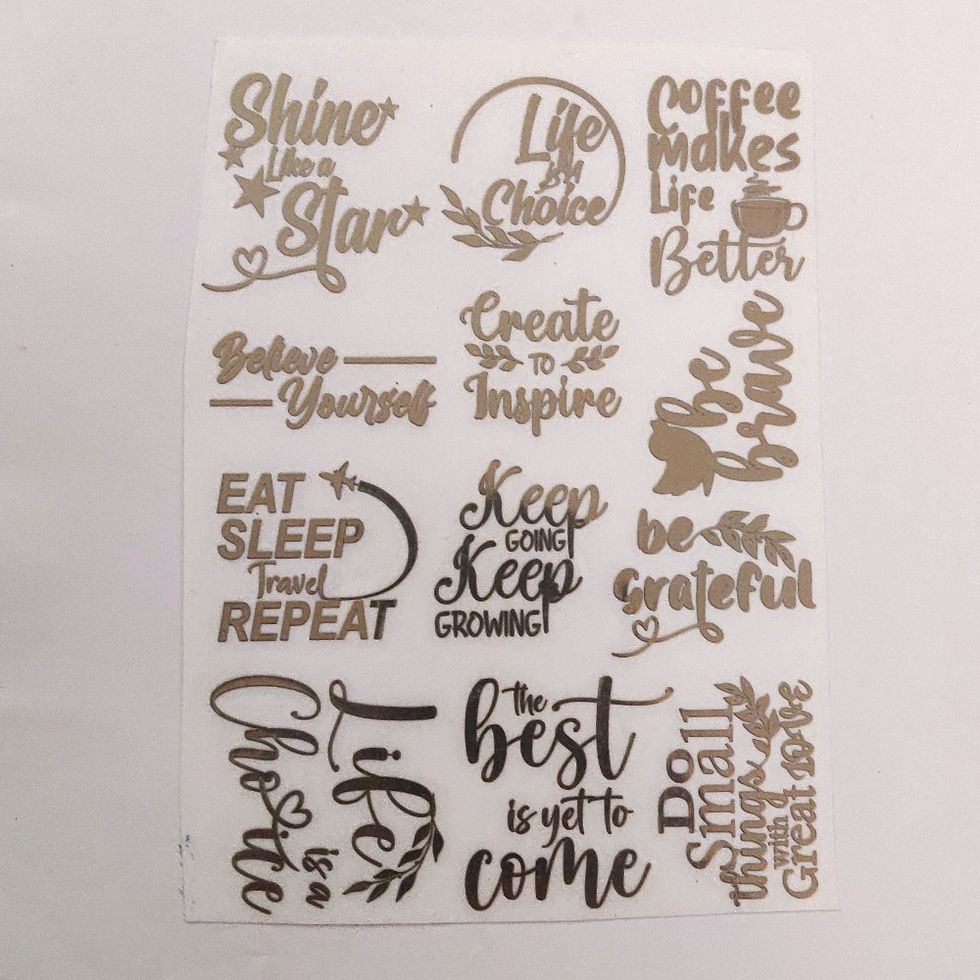 Shine
Like a
Star
Life
is a
Choice
Coffee
makes
Life
Better
Believe
Yourself
Create
TO
Inspire
be
brave
EAT
SLEEP
Travel
REPEAT
Keep
GOING
Keep
GROWING
be
Grateful
Life
is a
Choice
the
best
is yet to
come
Do
Small
things
with
Great love